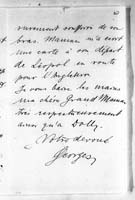 vivement souffrir de son
bras. Maman m'a écrit
une carte à son départ
de Léopol en route
pour l'Angleterre.
Je vous baise les mains
ma chère Grand Maman
très respectueusement
ainsi qu'à Lolly.
Votre dévoué
Georges